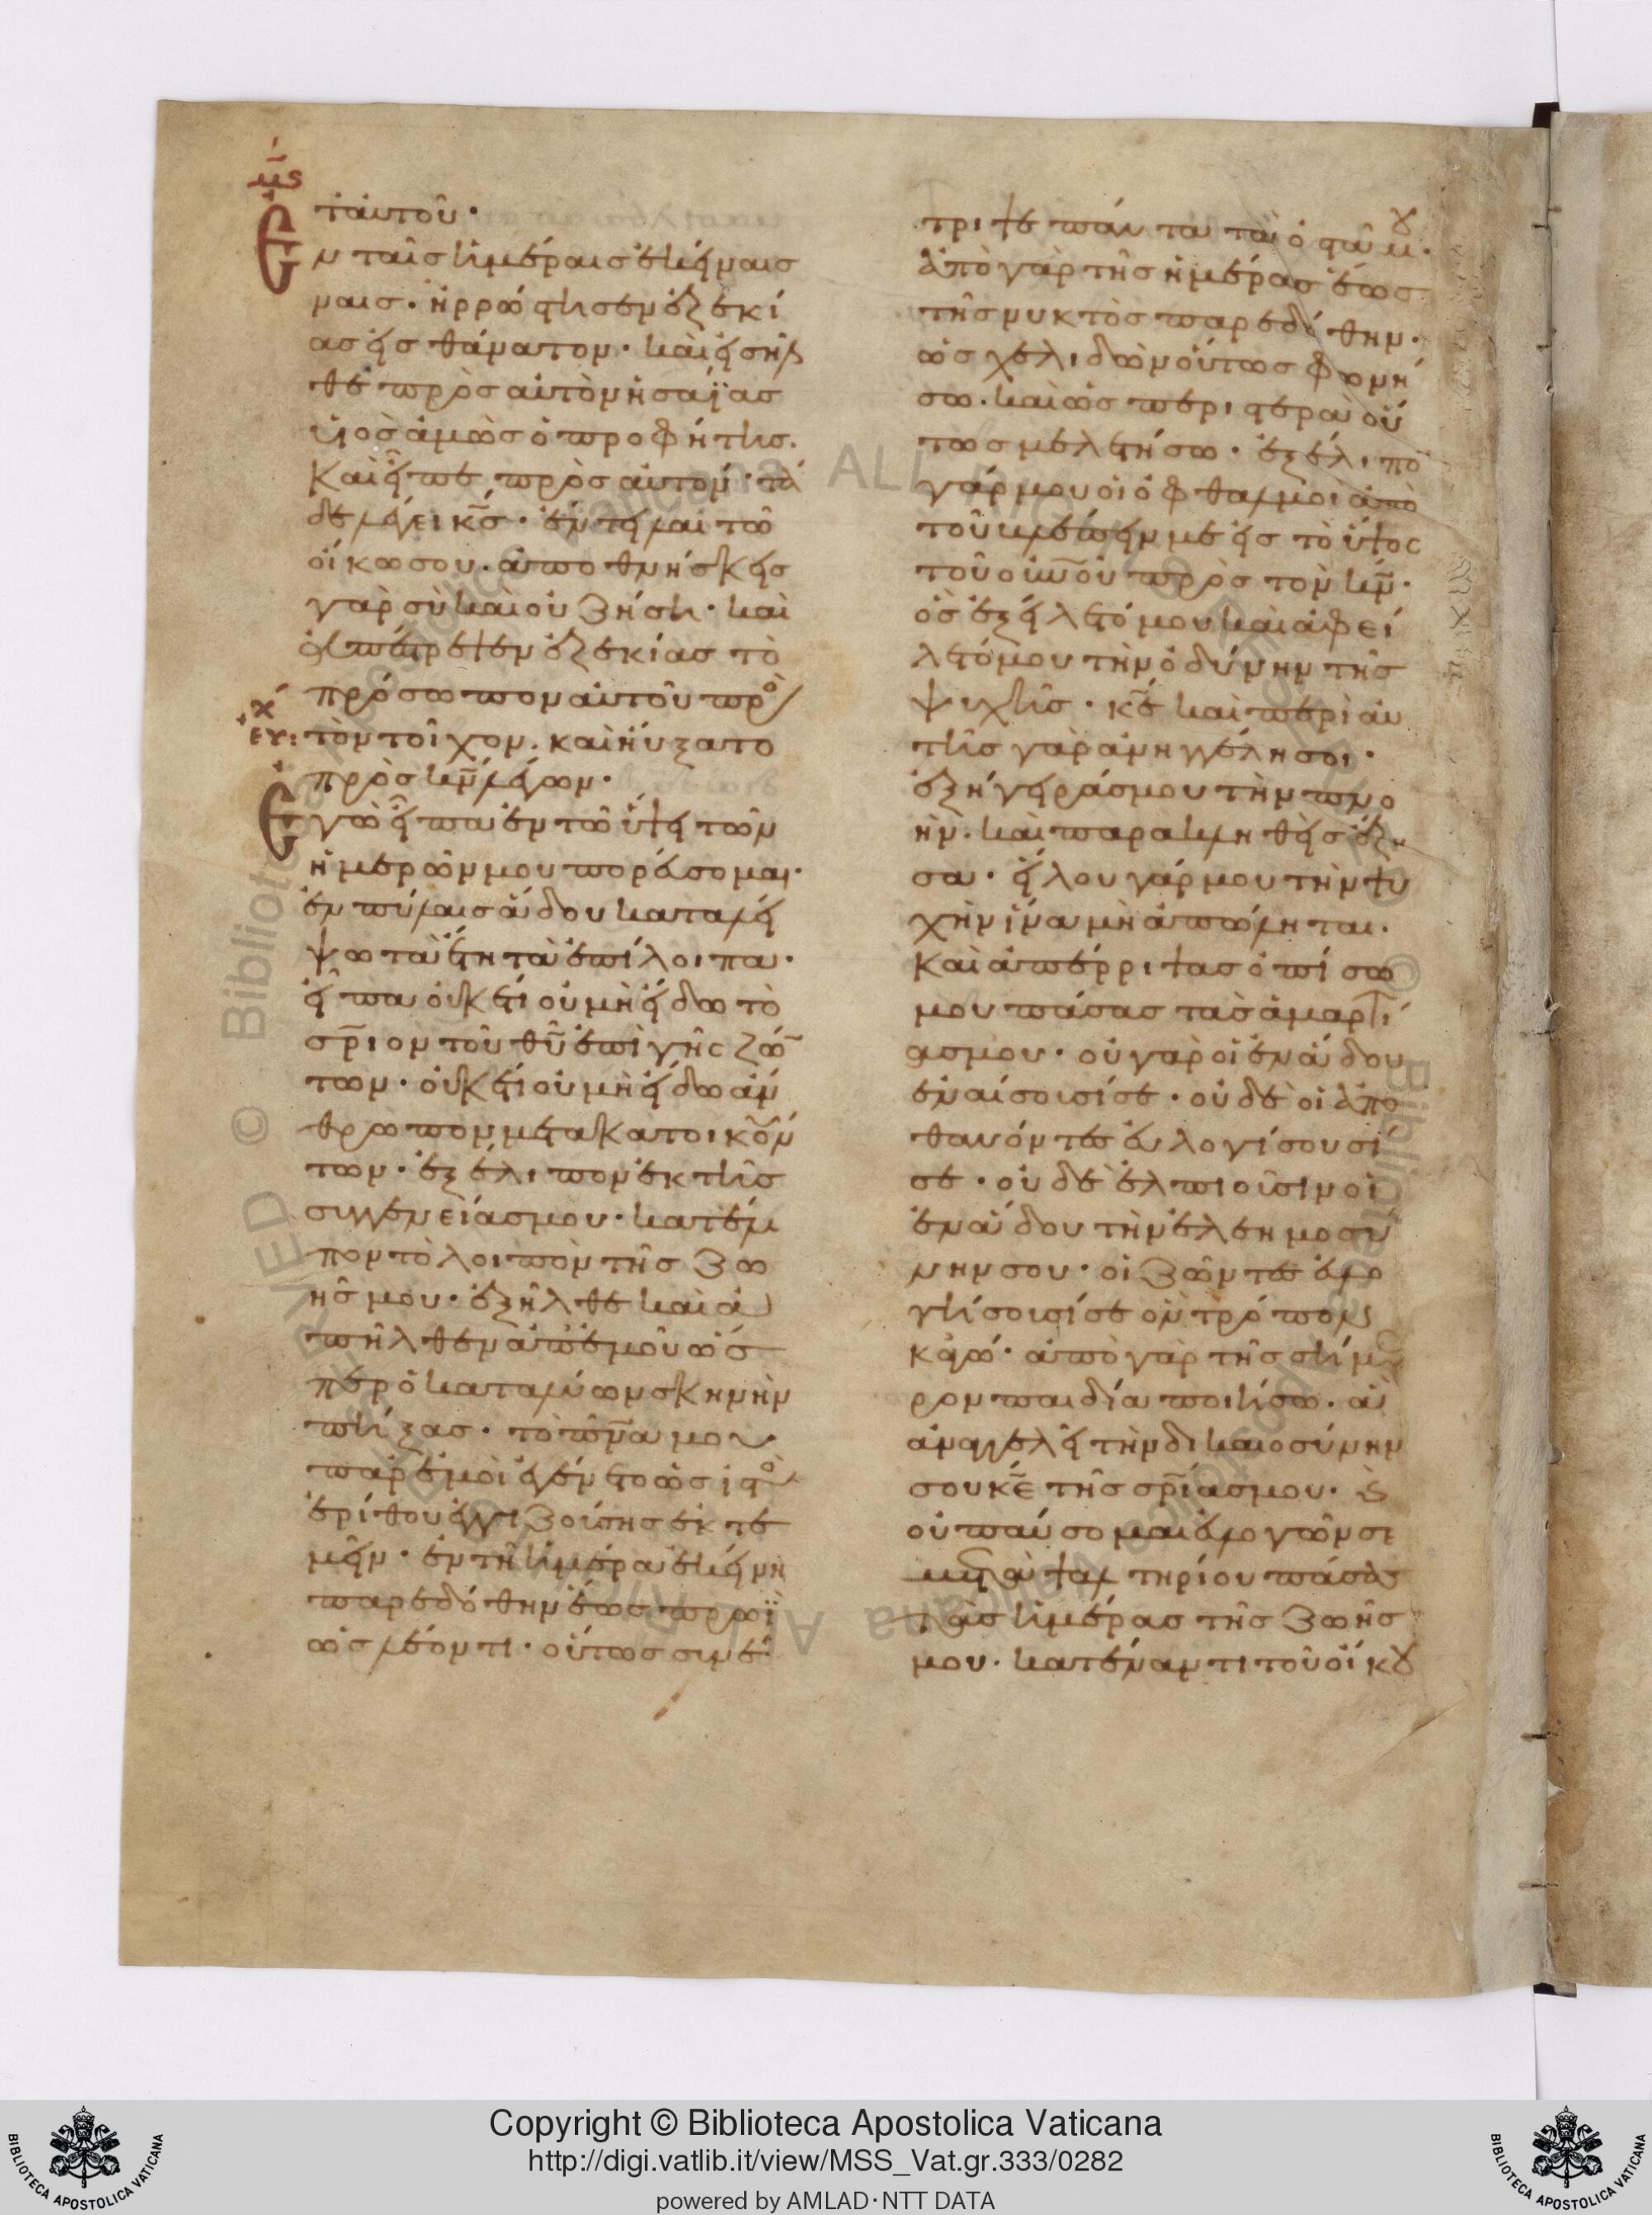 μ̅ς
τ' αὐτοῦ·
Ἐν ταῖς ἡμέραις ἐκείναις
ναις· ἠρρώστησεν ἐζεκί
ας εἰς θάνατον· καὶ εἰσῆλ
θε πρὸς αὐτὸν ἠσαΐας
υἱὸς ἀμὼς ὁ προφήτης.
Καὶ εἶπε πρὸς αὐτόν· τά
δε λέγει κ̅ς· ἔντειλαι τῶ
οἴκω σου· ἀποθνήσκεις
γὰρ σὺ καὶ οὐ ζήση· καὶ
ἀπέστρεψεν ἐζεκίας τὸ
πρόσωπον αὐτοῦ πρὸ
τὸν τοῖχον. καὶ ηὔξατο
πρὸς κ̅ν λέγων·
Ἐγὼ εἶπα ἐν τῶ ὕψει τῶν
ἡμερῶν μου πορεύσομαι·
ἐν πύλαις ἅδου καταλεί
ψω τὰ ἔτη τὰ ἐπίλοιπα·
εἶπα οὐκέτι οὐ μὴ εἴδω τὸ
σ̅ριον τοῦ θ̅υ ἐπὶ γῆς ζώ̅
των· οὐκέτι οὐ μὴ εἴδω ἄν
θρωπον μετὰ κατοικούν
των· ἐξέλιπον ἐκ τῆς
συγγενείας μου· κατέλι
πον τὸ λοιπὸν τῆς ζω
ῆς μου· ἐξῆλθε καὶ ἀ
πῆλθεν ἀπ' ἐμοῦ ὥσ
περ ὁ καταλύων σκηνὴν
πήξας· τὸ π̅ν̅α μου
παρ' ἐμοὶ ἐγένετο ὡς ἱστὸς
ἐρίθου ἐγγιζούσης ἐκτε
μεῖν· ἐν τῆ ἡμέρα ἐκείνη
παρεδόθην ἕως πρωῒ
ὡς λέοντι· οὕτως συνέ
τριψε πάντα τὰ ὀστᾶ μου·
ἀπὸ γὰρ τῆς ἡμέρας ἕως
τῆς νυκτὸς παρεδόθην·
ὡς χελιδὼν οὕτως φωνή
σω. καὶ ὡς περιστερὰ οὕ
τως μελετήσω· ἐξέλιπο̅
γάρ μου οἱ ὀφθαλμοὶ ἀπὸ
τοῦ βλέπειν με εἰς τὸ ὕψος
τοῦ ο̅υ̅ν̅ο̅υ πρὸς τὸν κ̅ν·
ὃς ἐξείλετό μου καὶ ἀφεί
λετό μου τὴν ὀδύνην τῆς
ψυχῆς· κ̅ε καὶ περὶ αὐ
τῆς γὰρ ἀνηγγέλη σοι·
ἐξήγειράς μου τὴν πνο
ήν. καὶ παρακληθεὶς ἔζη
σα· εἵλου γάρ μου τὴν ψυ
χὴν ἵνα μὴ ἀπόληται.
Καὶ ἀπέρριψας ὀπίσω
μου πάσας τὰς ἁμαρτί
ας μου· οὐ γὰρ οἱ ἐν ἅδου
ἐναίσουσί σε· οὐδὲ οἱ ἀπο
θανόντες εὐλογήσουσί
σε· οὐδὲ ἐλπιοῦσιν οἱ
ἐν ἅδου τὴν ἐλεημοσύ
νην σου· οἱ ζῶντες εὐλο
γήσουσί σε ὃν τρόπον
κἀγώ· ἀπὸ γὰρ τῆς σήμε
ρον παιδία ποιήσω. ἃ
ἀναγγελεῖ τὴν δικαιοσύνην
σου κ̅ε τῆς σ̅ρίας μου· καὶ
οὐ παύσομαι εὐλογῶν σε
μετὰ ψαλτηρίου πάσας
τὰς ἡμέρας τῆς ζωῆς
μου. κατέναντι τοῦ οἴκου
Copyright © Biblioteca Apostolica Vaticana
http://digi.vatlib.it/view/MSS_Vat.gr.333/0282
powered by AMLAD·NTT DATA
BIBLIOTECA APOSTOLICA VATICANA
BIBLIOTECA APOSTOLICA VATICANA